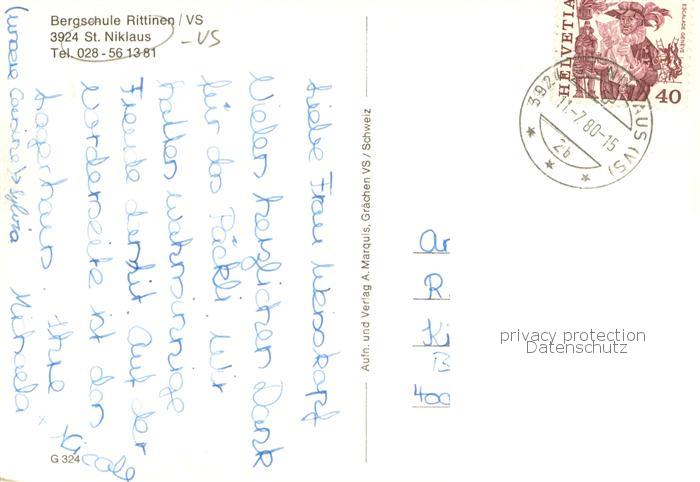 Bergschule Rittinen / VS
3924 St. Niklaus
Tel. 028 - 56 13 81
- VS
Liebe Frau
Vielen herzlichen Dank
für das Päckli. Wir
hatten wahnsinnige
Freude damit. Auf der
Vorderseite ist das
Lagerhaus. Ihre
Michaela
G 324
Aufn. und Verlag A. Marquis, Grächen VS / Schweiz
HELVETIA
ESCALADE GENÈVE
40
3924 ST. NIKLAUS (VS)
11.-7.80-15
2b
R.
Ki
B
400
privacy protection
Datenschutz